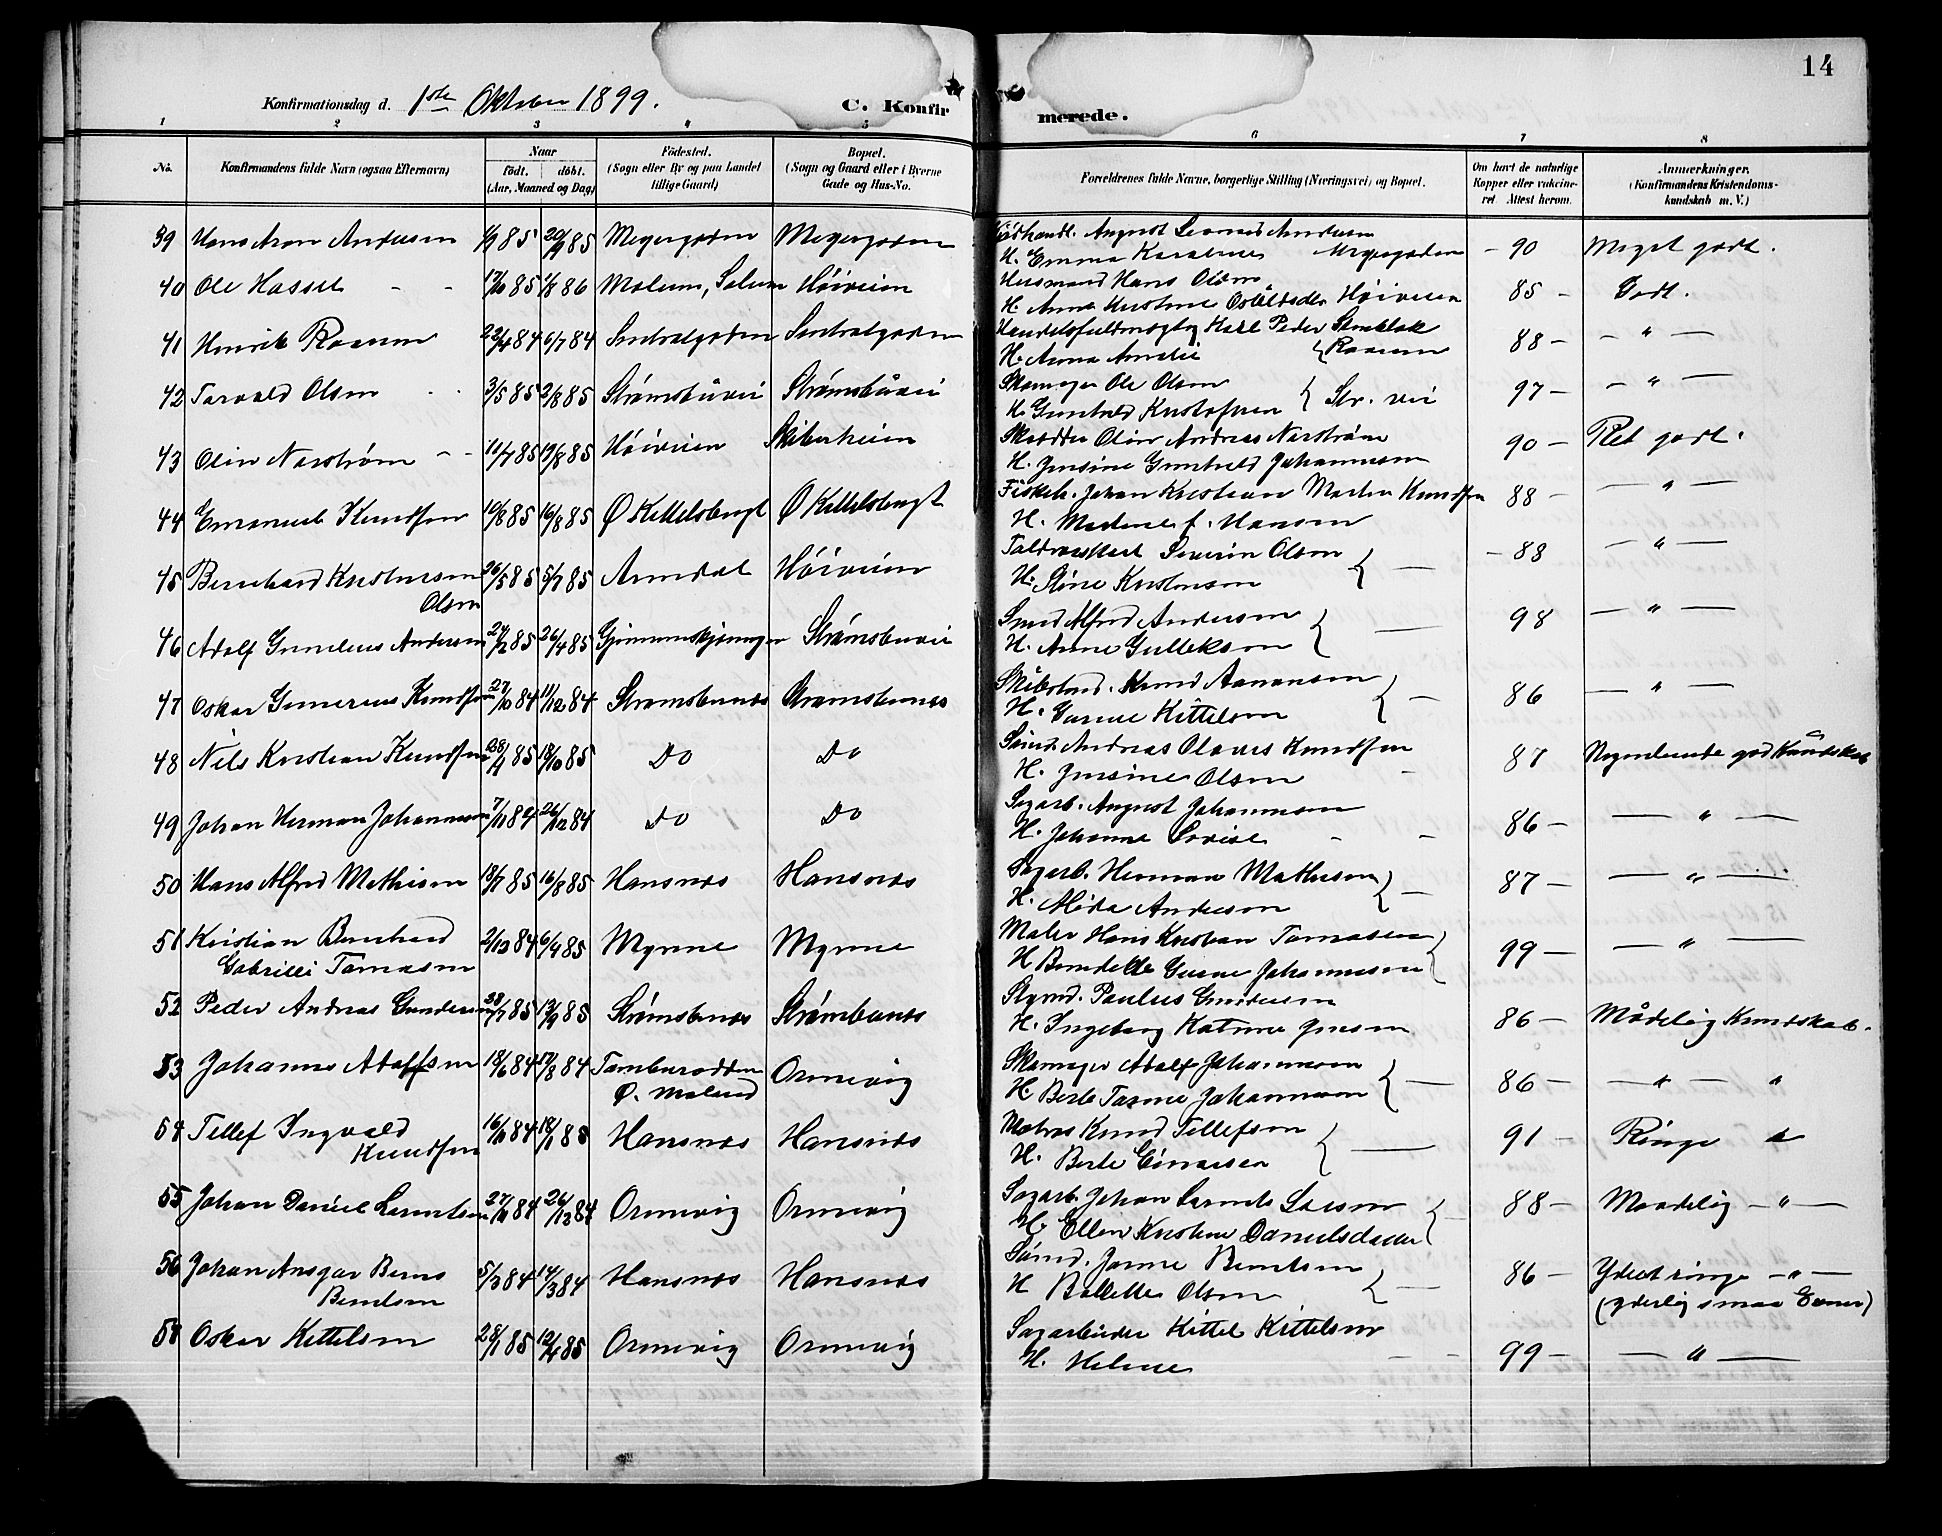 14
Konfirmationsdag d. 1ste Oktober 1899.
C. Konfirmerede.
1 2 3 4 5 6 7 8
No. Konfirmandens fulde Navn (ogsaa Efternavn) Naar født. døbt. (Aar, Maaned og Dag) Fødested. (Sogn eller By og paa Landet tillige Gaard) Bopæl. (Sogn og Gaard eller i Byerne Gade og Hus-No. Forældrenes fulde Navne, borgerlige Stilling (Næringsvei) og Bopæl. Om havt de naturlige Kopper eller vakcineret. Attest herom. Anmærkninger. (Konfirmandens Kristendomskundskab m. V.)
39 Hans Aron Andersen 1/9 85 20/9 85 Meyergaden Meyergaden August Leonard Andersen - 90 Meget godt.
H. Emma Karoline Meyergaden
40 Ole Hassel - - 17/10 85 1/8 86 Høiveien Husmand Hans Olsen 85 - Godt.
H. Anne Kirstine Høiveien
41 Henrik Roanen 22/4 84 6/7 84 Sentralgaden Sentralgaden Karl Peder 88 - - " -
H. Anna Amalie
42 Torvald Olsen 3/5 85 2/8 85 Strømsbuvei Strømsbuvei Skomager Ole Olsen Str. vei 97 - - " -
H. Gunhild Kristofersen
43 Olin Narstrøm - - 11/7 85 19/8 85 Høiveien Skiberheien Skrædder Olin Andreas Narstrøm 90 - Ret godt.
H. Jensine Gunhild Johannesen
44 Emanuel Knudsen 10/8 85 16/8 85 Ø Kittelsbugt Ø Kittelsbugt Fiskeh. Johan Kristian Martin Knudsen 88 - - " -
H. Madene f. Hansen
45 Bernhard Kristensen 26/5 85 5/7 85 Arendal Høiveien Severin Olsen - - 88 - " -
Olsen H. Stine Kristensen
46 Adolf Gunelius Andersen 24/2 85 26/4 85 Strømsbuvei Smed Alfred Andersen - 98 - " -
H. Anne Gulleksen
47 Oskar Gunerius Knudsen 27/10 84 11/12 84 Strømsbunes Strømsbunes Skibstmd. Knud Aanonsen - 86 - " -
H. Gurine Kittelsen
48 Nils Kristian Knudsen 28/4 85 18/10 85 Do Do Sømd. Andreas Olaves Knudsen 87 Nogenlunde god Kundskab
H. Jensine Olsen -
49 Johan Herman Johannesen 7/11 84 26/12 84 Do Do Sagarb. August Johannesen 86 - - " -
H. Johanne Lovise - -
50 Hans Alfred Mathisen 18/7 85 16/8 85 Hansnes Hansnes Sagarb. Herman Mathisen - 87 - - " -
H. Alida Andersen
51 Kristian Bernhard 2/10 84 6/4 85 Myrene Myrene Maler Hans Kristian Tomasen 99 - - " -
Gabrilli Tomasen H Bendette Gurine Johannesen
52 Peder Andreas Gundersen 28/7 85 13/9 85 Strømsbunes Strømbunes Styrmd. Paulus Gundersen 86 - Mådelig Kundskab.
H. Ingeborg Katrine Jensen
53 Johannes Adolfsen 18/6 84 17/8 84 Tamburodden Ormevig Skomager Adolf Johannesen - 86 - - " - "
Ø. Moland H. Berte Tomine Johannesen
54 Tellef Ingvald 16/10 84 18/1 85 Hansnes Hansnes Matros Knud Tellefsen - 91 - Ringe "
Knudsen H. Berte Einarsen
55 Johan Daniel Larentsen 27/10 84 26/12 84 Ormevig Ormevig Sagarb. Johan Larents Larsen - 88 - Maadelig - " -
H. Ellen Kristine Danielsdatter
56 Johan Ansgar Berns 5/3 84 14/3 84 Hansnes Hansnes Sømd. Jonne Berntsen - 86 - Yderst ringe - " -
Berntsen H Bollette Olsen (yderlig smaa Evner)
58 Oskar Kittelsen 28/1 85 12/4 85 Ormevig Ormevig Sagarbeider Kittel Kittelsen 99 - - " -
H. Helene - -